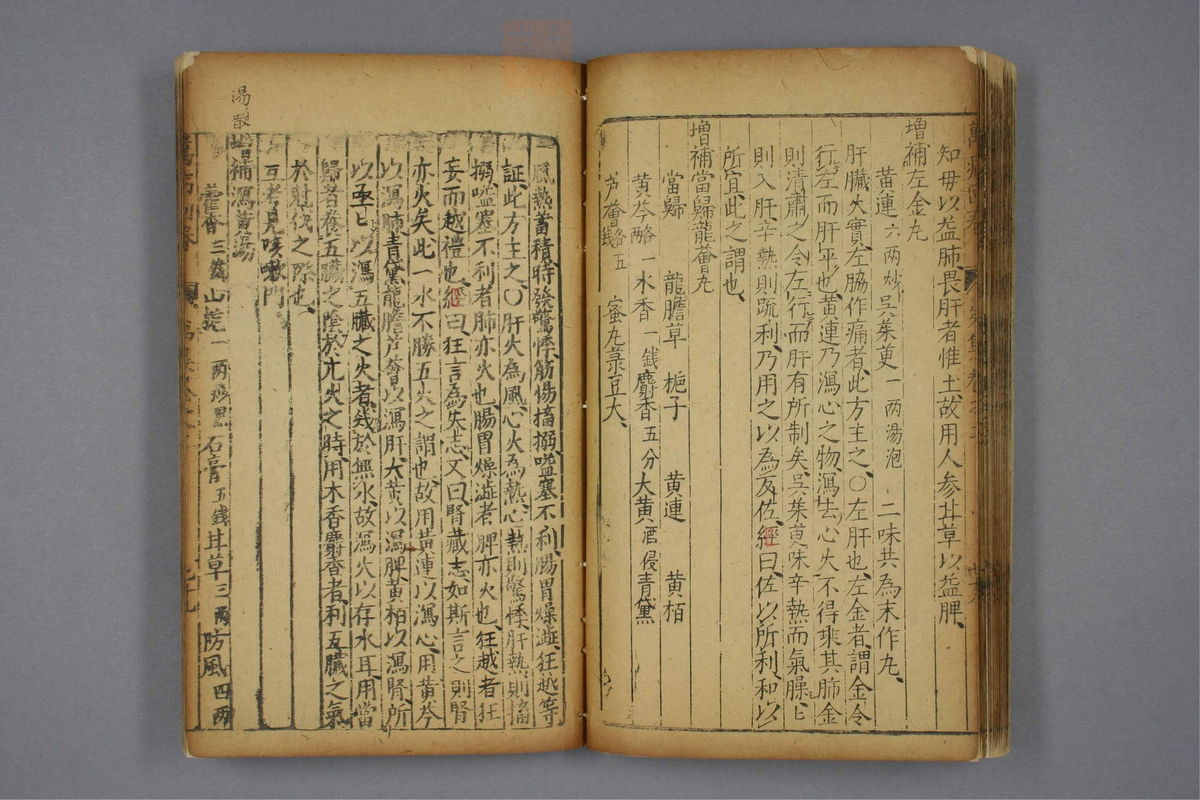 知毋以益肺畏肝者惟土故用人參甘草以益脾
増補左金丸
黃連六两炒吳茱萸一两湯泡 二味共為末作丸
肝臟火實左脇作痛者此方主之〇左肝也左金者謂金令
行左而肝平也黃連乃瀉心之物瀉去心火不得乘其肺金
則清肅之令左行而肝有所制矣吳茱萸味辛熱而氣臊匕
則入肝辛熱則疏利乃用之以為反佐經曰佐以所利和以
所宜此之謂也
増補當歸龍薈丸
當歸 龍膽草 梔子 黃連 黃栢
黃芩 一水香一錢麝香五分大黃酒侵青黛
芦薈各五 蜜丸菉豆大
風熱蓄積時發驚悸筋惕搐搦嗌塞不利腸胃燥澁狂越等
証此方主之〇肝火為風心火為熱心熱則驚悸肝熱則搐
搦嗌塞不利者肺亦火也腸胃燥澁者脾亦火也狂越者狂
妄而越禮也經曰狂言為失志又曰腎藏志如斯言之則腎
亦火矣此一水不勝五火之謂也故用黃連以瀉心用黃芩
以瀉肺青黛龍膽芦薈以瀉肝大黃以瀉脾黃栢以瀉腎所
以亟匕以瀉五臟之火者幾於無水故瀉火以存水耳用當
歸者養五臟之陰於亢火之時用木香麝香者利五臟之氣
於尅伐之際也
互考見咳嗽門
湯
増補瀉黃湯
藿香三錢山梔一两炒黑石膏五錢甘草三两防風四两